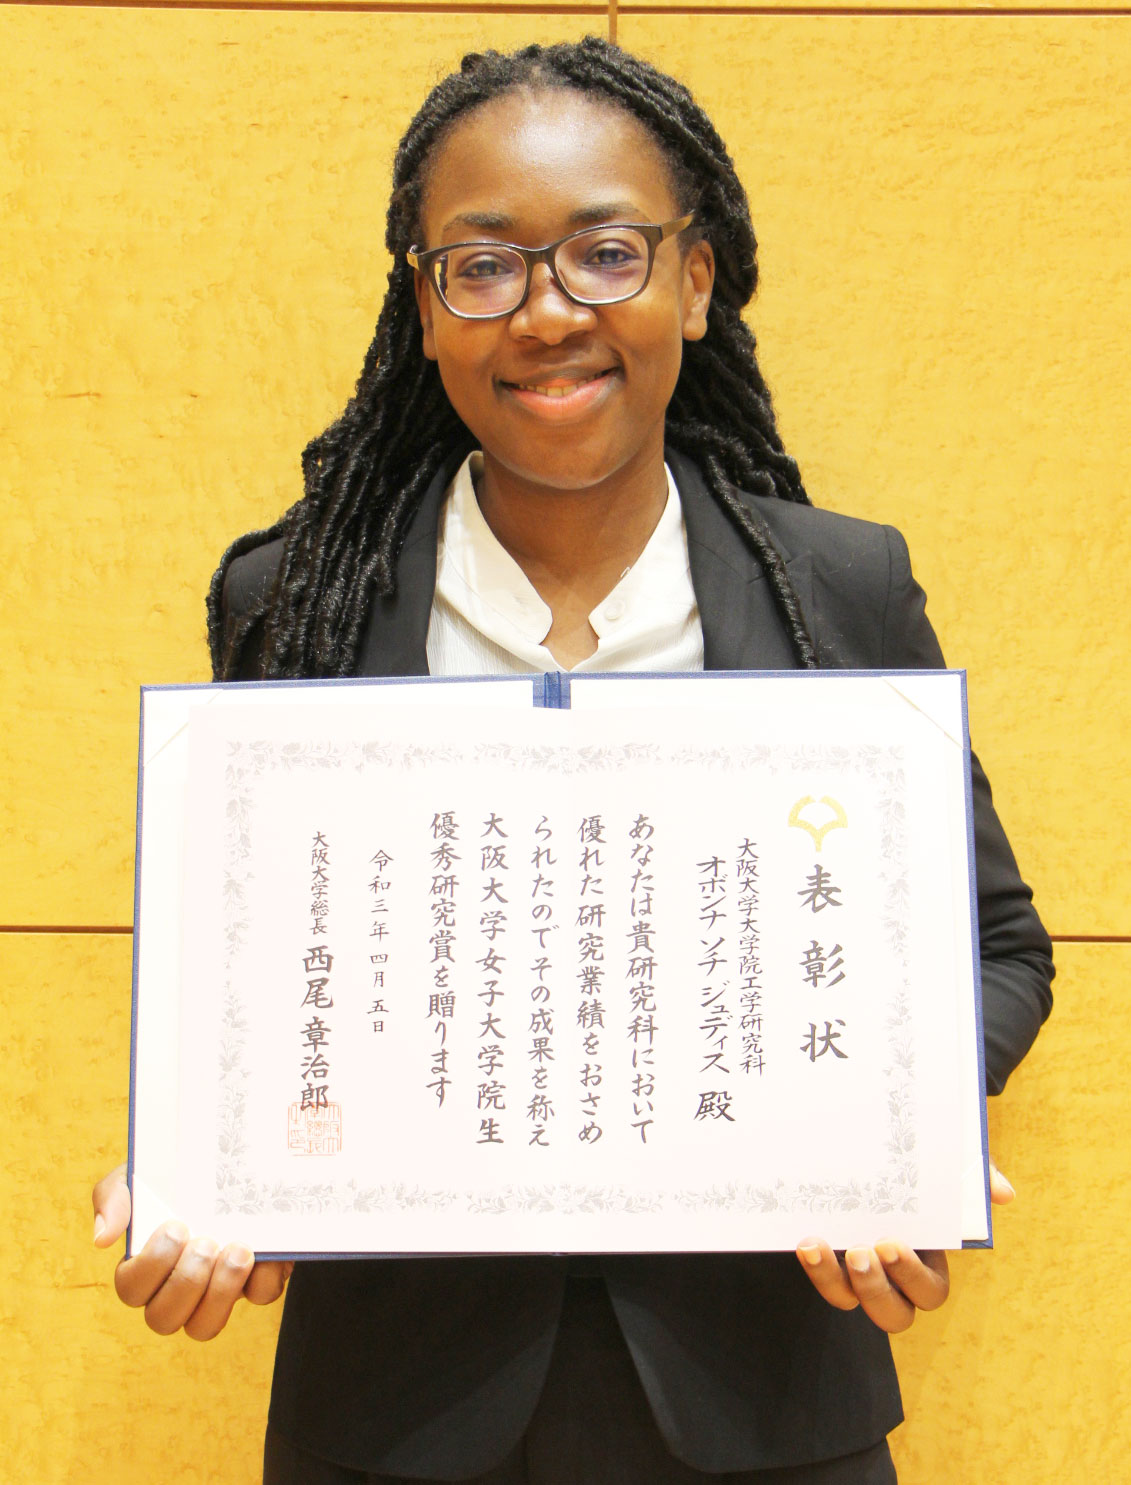 表彰状
大阪大学大学院工学研究科
オボンナ ソチ ジュディス 殿
あなたは貴研究科において
優れた研究業績をおさめ
られたのでその成果を称え
大阪大学女子大学院生
優秀研究賞を贈ります
令和三年四月五日
大阪大学総長 西尾章治郎